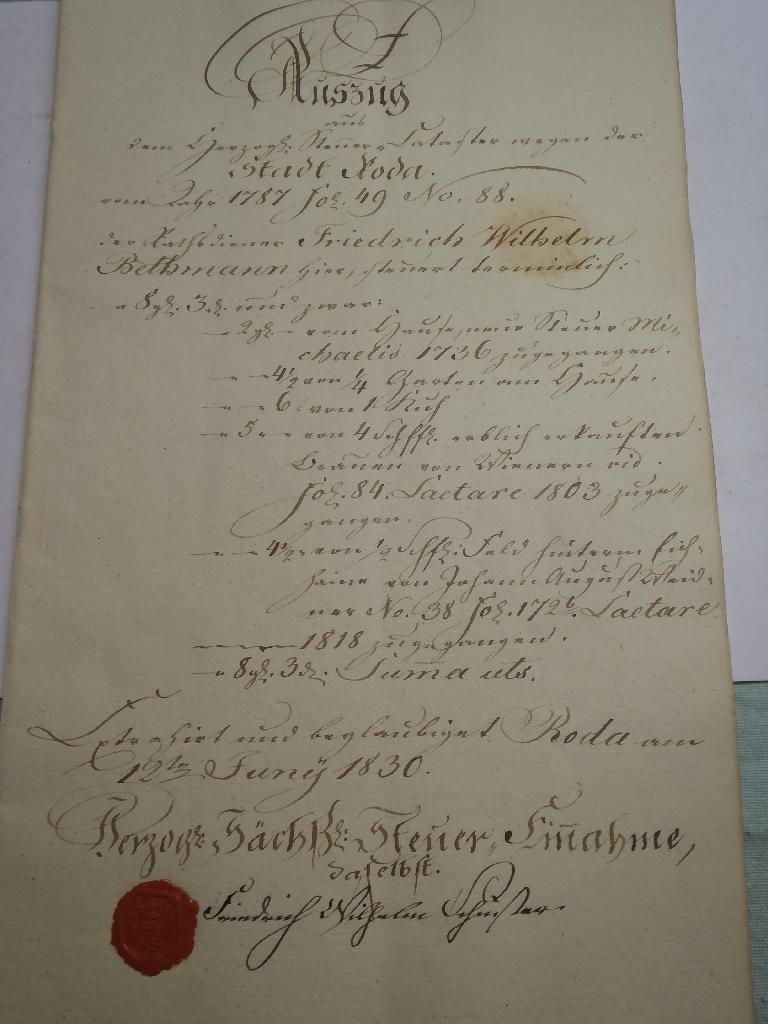 Auszug
aus
dem Herzogl: Steuer-Cataster wegen der
Stadt Roda.
vom Jahr 1787 Fol. 49 No. 88.
der Rathsdiener Friedrich Wilhelm
Bethmann hier, steuert terminlich:
-- 8 gl. 3 d. und zwar:
-- 2 gl. -- vom Hause, neue Steuer Mi-
chaelis 1736 zugegangen.
-- -- 4½ von ¼ Garten am Hause,
-- -- 6 von 1 Kuh
-- 5 -- von 4 Schffl. erblich erkauften
Brauen von Wienern
Fol. 84. Laetare 1803 zuge-
gangen.
-- -- 4½ von ½ Schffl: Feld hinterm Eich-
haine von Johann August Weid-
ner No. 38 Fol. 172b. Laetare
1818 zugegangen.
-- 8 gl. 3 d. Suma uts.
Extrahirt und beglaubiget Roda am
12ten Juny 1830.
Herzogl: Sächßl: Steuer-Einahme,
daselbst.
Friedrich Wilhelm Schuster